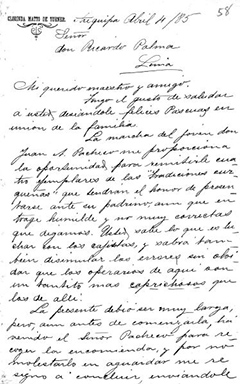 58
CLORINDA MATTO DE TURNER.
Arequipa Abril 4/85
Señor
don Ricardo Palma
Lima
Mi querido maestro y amigo:
Tengo el gusto de saludar
a usted, deseándole felices Pascuas en
union de la familia.
La marcha del joven don
Juan N. Pacheco me proporciona
la oportunidad, para remitirle cua
tro ejemplares de las "Tradiciones cuz
queñas" que tendran el honor de presen
tarse ante su padrino, aun que en
traje humilde y no muy correctas
que digamos. Usted, sabe lo que es lu
char con los cajistas, y sabrá tam
bien disimular los errores sin olvi
dar que los operarios de aqui son
un tantito mas caprichosos que
los de allí.
La presente debió ser muy larga,
pero, aun antes de comenzarla, há
venido el Señor Pacheco para re
coger la encomienda; y por no
molestarlo en aguardar me re
signo a concluir enviándole